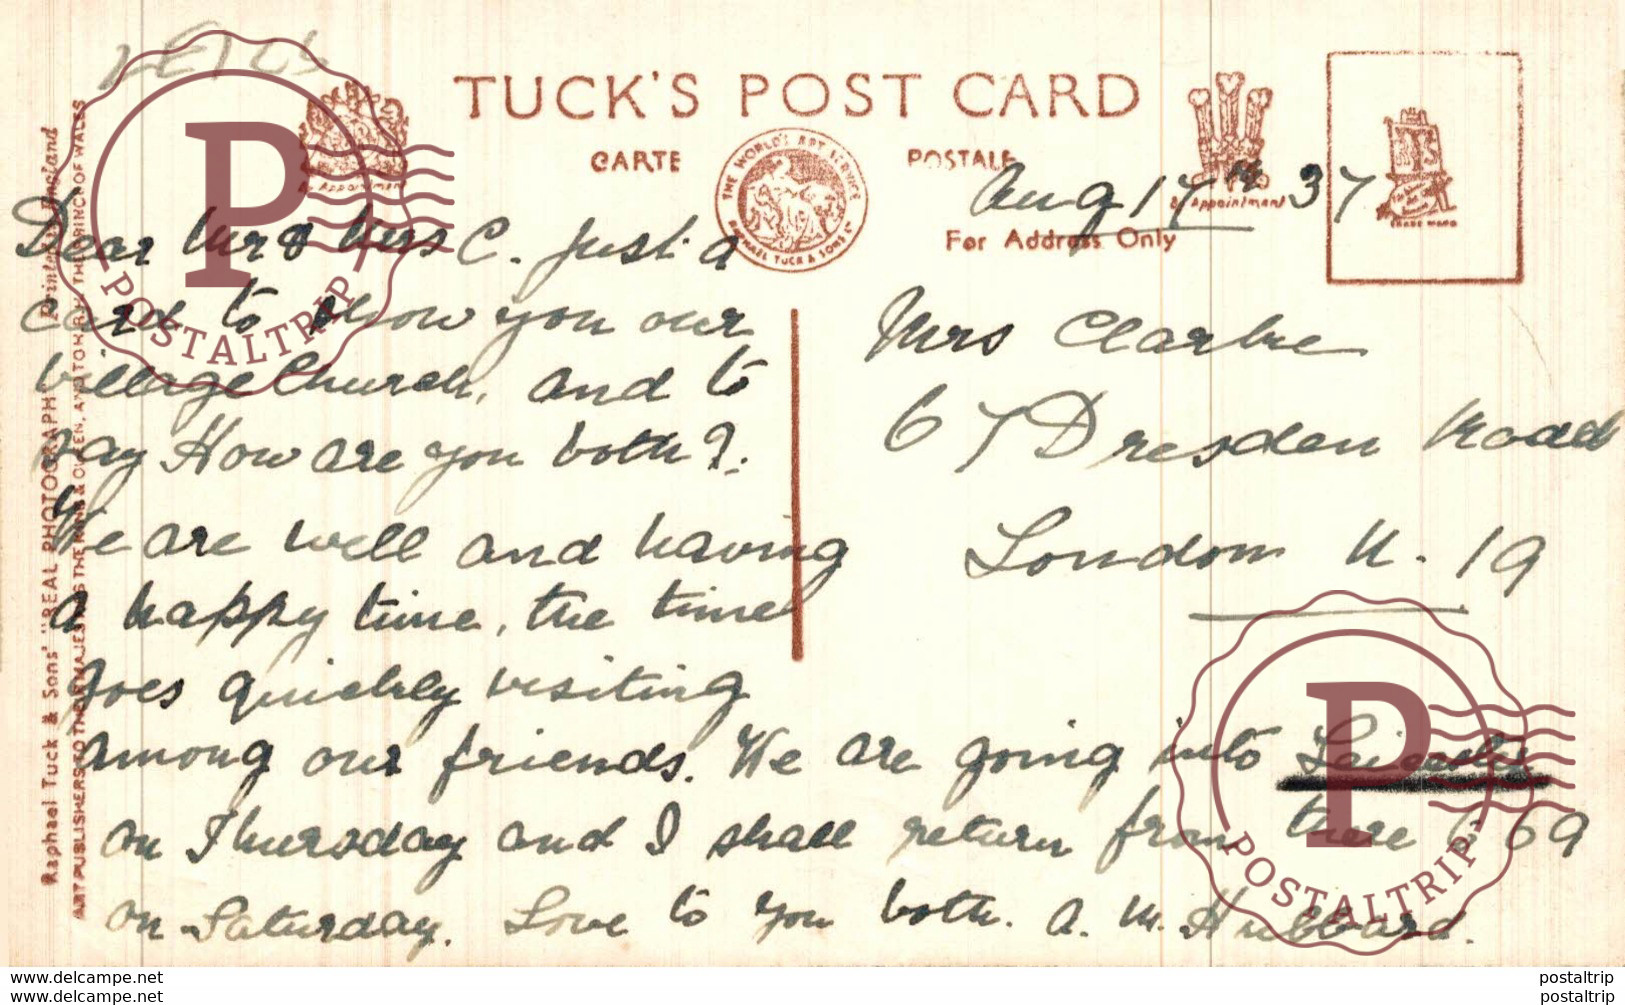 LEICS
TUCK'S POST CARD
CARTE POSTALE
THE WORLD'S ART SERVICE
RAPHAEL TUCK & SONS LTD
By Appointment
By Appointment
TRADE MARK
For Address Only
Raphael Tuck & Sons' "REAL PHOTOGRAPH" Printed in England
ART PUBLISHERS TO THEIR MAJESTIES THE KING & QUEEN, AND TO H.R.H. THE PRINCE OF WALES
Aug 17th 37
Dear Mr & Mrs C. Just a
card to show you our
village Church, and to
say How are you both?.
We are well and having
a happy time, the time
goes quickly visiting
among our friends. We are going into Leicester
on Thursday and I shall return from there 6 69
on Saturday. Love to you both. A. M. Hubbard.
Mrs Clarke
67 Dresden Road
London N. 19
P
POSTALTRIP
P
POSTALTRIP
www.delcampe.net
postaltrip
www.delcampe.net
postaltrip